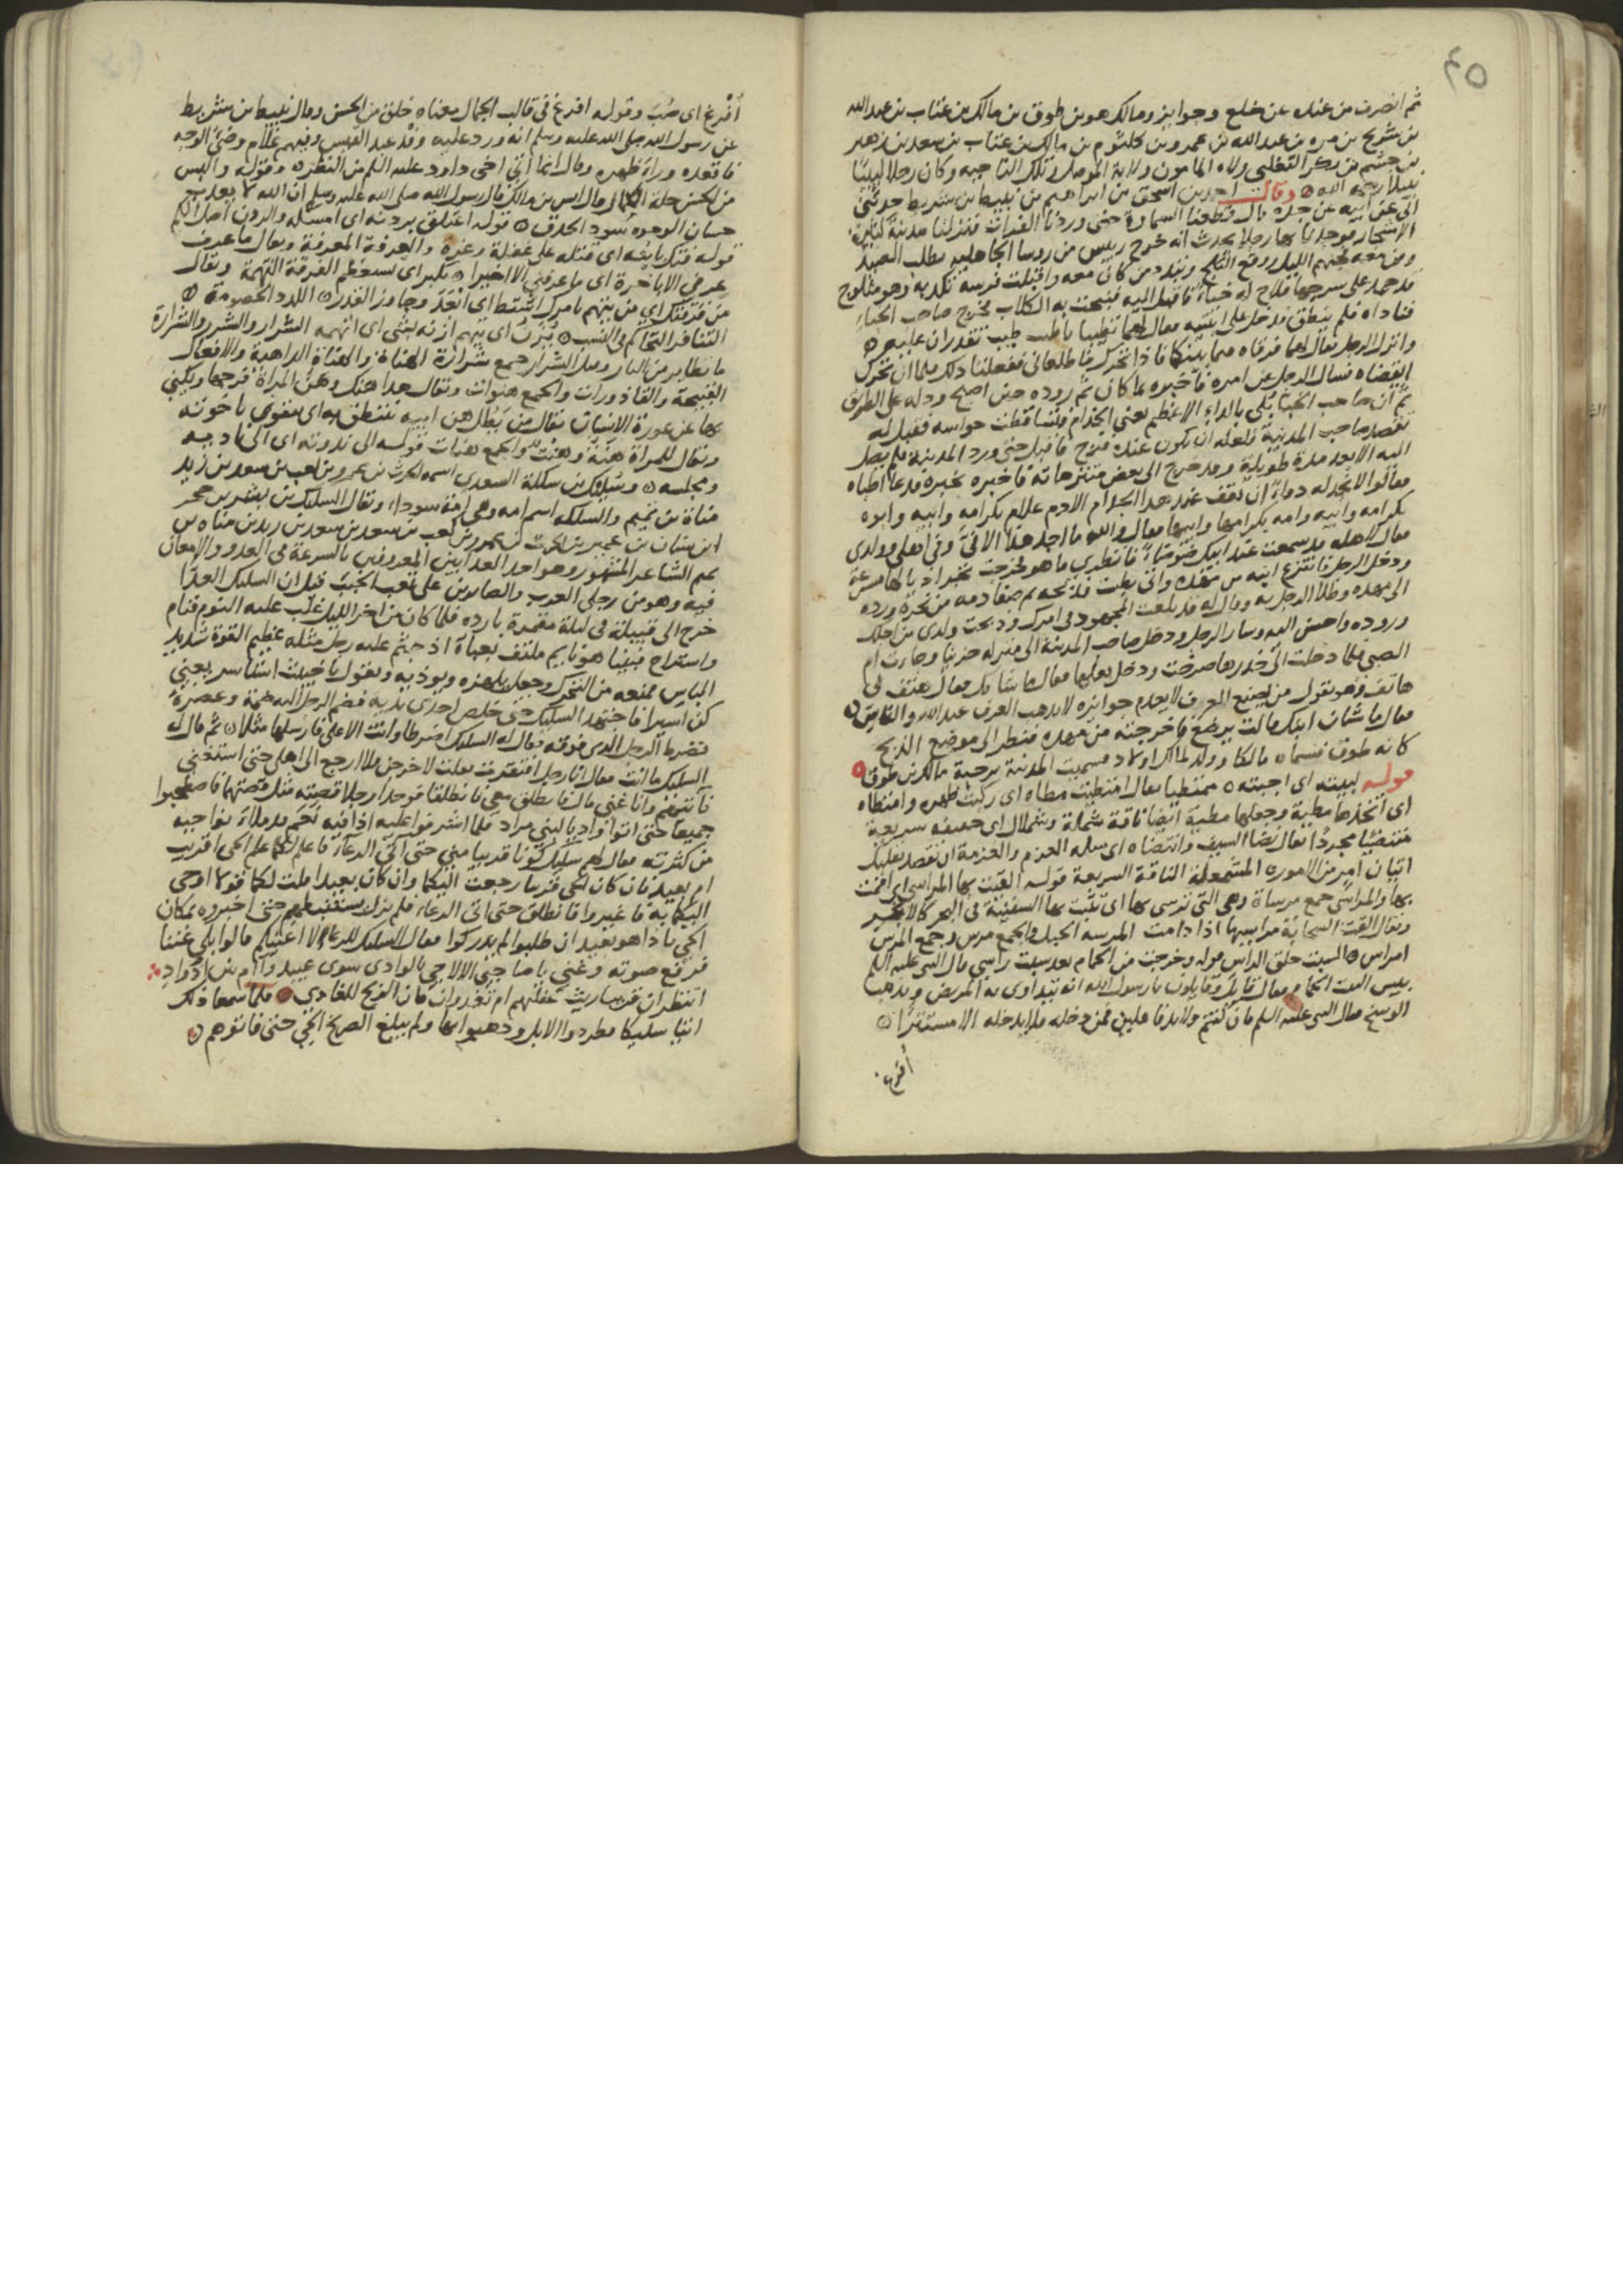 ٤٥
ثم انصرف من عنده عن خلع وجوايز ومالك هو بن طوق بن مالك بن عتاب بن عبد الله
بن شريح بن مره بن عبد الله بن عمرو بن كلثوم بن مالك بن عتاب بن سعد بن زهير
بن جشم بن بكر التغلبي ولاه المامون ولاية الموصل وتلك الناحيه وكان رجلا لبيبا
نبيلا رحمه الله وقال احمد بن اسحق بن ابراهيم بن نبيط بن شريط حدثني
ابي عن ابيه عن جده قال قطعنا السماوة حتى وردنا الفرات فنزلنا مدينة كثيرة
الاشجار فوجدنا بها رجلا يحدث انه خرج رييس من روسا الجاهليه يطلب الصيد
ومن معه فجنهم الليل ووقع الثلج وتبدد من كان معه واقبلت فرسه تكد به وهو مثلوج
قد جمد على سرجها فلاح له خباء فاقبل اليه فنبحت به الكلاب فخرج صاحب الخباء
فناداه فلم ينطق فدخل على ابنتيه فقال لهما تطيبا باطيب طيب تقدران عليه
وانزل الرجل فقال لهما فرقاه فيما بينكما فاذا تحرك فاطلعاني ففعلتا ذلك فلما ان تحرك
ايقضاه فسال الرجل عن امره فاخبره بما كان ثم زوده حين اصبح ودله على الطريق
ثم ان صاحب الخبا بلي بالداء الاعظم يعني الجذام فتساقطت حواسه فقيل له
تقصد صاحب المدينة فلعله ان يكون عنده فرج فاقبل حتى ورد المدينة فلم يصل
اليه الا بعد مدة طويلة وقد خرج الى بعض متنزهاته فاخبره بخبره فدعا اطباه
فقالوا لا نجد له دواء
ودخل الرجل فانتزع ابنه من مهده
الى مهده وطلا الرجل به وقال له قد بلغت المجهود في امرك وذبحت ولدي من اجلك
وزوده واحسن اليه وسار الرجل ودخل صاحب المدينة الى منزله حزينا وصارت ام
الصبي فلما دخلت الى خدرها صرخت ودخل بعلها فقال ما شانك فقالت هتف لي
هاتف وهو يقول من يصنع المعروف لا يعدم جوايزه لا يذهب العرف عند الله والناس
فقال ما شان ابنك قالت يرضع فاخرجته من مهده فنظر الى موضع الذبح
كانه طوق فسماه مالكا وولد لمالك اولاد فسميت المدينة برحبة مالك بن طوق
قوله لبيته اي اجبته ممتطيا يقال امتطيت مطاه اي ركبت ظهره وامتطاه
اي اتخذها مطية وجعلها مطية ايضا ناقة شملة وشملال اي خفيفه سريعة
منتضيا مجردا يقال نضا السيف وانتضاه اي سله العزم والعزمة ان تقصد بقلبك
اتيان امر من الامور المشمعلة الناقة السريعة قوله القيت بها المراسي اي اقمت
بها والمراسي جمع مرساة وهي التي ترسى بها اي تثبت بها السفينة في البحر كالانجر
ويقال القت السحابة مراسيها اذا دامت المرسه الحبل والجمع مرس وجمع المرس
امراس السبت حلق الراس قوله وخرجت من الحمام بعد سبت راسي قال النبي عليه السلم
بيس البيت الحمام فقال قايل وقايلون يا رسول الله انه يتداوى به المريض ويذهب
الوسخ فقال النبي عليه السلم فان كنتم ولا بد فاعلين فمن دخله فلا يدخله الا مستترا
افرغ
اُفْرِغ اي صُبَّ وقوله افرغ في قالب الجمال معناه خلق من الحسن وقال نبيط بن شريط
عن رسول الله صلى الله عليه وسلم انه ورد عليه وفد عبد القيس وفيهم غلام وضيّ الوجه
فاقعده وراء ظهره وقال انما اُتي اخي داود عليه السلم من النظره وقوله والبس
من الحسن حلة الكمال قال انس بن مالك قال رسول الله صلى الله عليه وسلم ان الله لا يعذب
حسان الوجوه سود الحدق قوله اعتلق بردنه اي امسكه والردن اصل الكم
قوله فتك بابنه اي قتله على غفلة وغرة والعرفة المعرفة ويقال ما عرف
عرفي الا باخرة اي ما عرفني الا اخيرا يكبر اي يستعظم القرفة التهمة ويقال
من قرفتك اي من يتهم بامرك اشتط اي ابْعَدَ وجاوز القدر اللدد الخصومة
التنافر التحاكم في النسب يُزَنّ اي يتهم ازنه بشي اي اتهمه الشرار والشرر والشرارة
ما تطاير من النار وقيل الشرار جمع شرارة الهناة والهناة الداهية والافعال
القبيحة والقاذورات والجمع هنوات ويقال هذا هنك وهن المراة فرجها ويكنى
بها عن عورة الانسان يقال من يَطُل هن ابيه ينتطق به اي يتقوى باخوته
ويقال للمراة هَنَةٌ وهنت والجمع هنات قوله الى ندوته اي الى ناديه
ومجلسه وسُليك بن سلكة السعدي اسمه الحرث بن عمرو بن كعب بن سعد بن زيد
مناة بن تميم والسلكه اسم امه وهي امة سوداء ويقال السليك بن يشربن حجر
تميم الشاعر المشهور وهو احد العدايين المعروفين بالسرعة في العدو والامعان
فيه وهو من رجلي العرب والصابرين على تعب الخبب قيل ان السليك العدا
خرج الى قبيلة في ليلة مقمرة باردة فلما كان من اخر الليل غلب عليه النوم فنام
واستراح فبينا هو نايم ملتف بعباة اذ جثم عليه رجل مثله عظيم القوة شديد
الباس فمنعه من التحرك وجعل يلهزه ويوذيه ويقول يا خبيث استاسر يعني
كن اسيرا فاجتهد السليك حتى خلص احدى يديه فضم الرجل اليه ضمة وعصره
فضرط الرجل الذي فوقه فقال له السليك اضرطا وانت الاعلى فارسلها مثلا ثم قال له
السليك ما انت فقال انا رجل افتقرت فقلت لاخرجن فلا ارجع الى اهلي حتى استغني
فآتيهم وانا غني قال فانطلق معي فانطلقا فوجدا رجلا قصته مثل قصتهما فاصطحبوا
جميعا حتى اتوا واديا لبني مراد فلما اشرفوا عليه اذا فيه نعم قد ملا نواحيه
من كثرته فقال لهم سليك كونا قريبا مني حتى آتي الدعاء فاعلم لكما علم الحي اقريب
ام بعيد فان كان الحي قريبا رجعت اليكما وان كان بعيدا قلت لكما قولا اوحي
اليكما به فاغيروا فانطلق حتى اتى الدعاء فلم يزل يستنبطهم حتى اخبروه بمكان
الحي فاذا هو بعيد ان طلبوا لم يدركوا فقال السليك للدعاء الا اغنيكم قالوا بلى غننا
فرفع صوته وغنى يا صاحبيّ الا لا حي بالوادي سوى عبيد وآام بين اذواد
اتنظران قريبا ريث غفلتهم ام تعدوان فان الريح للعادي فلما سمعا ذلك
اتيا سليكا فطردوا الابل وذهبوا بها ولم يبلغ الصريخ الحي حتى فاتوهم